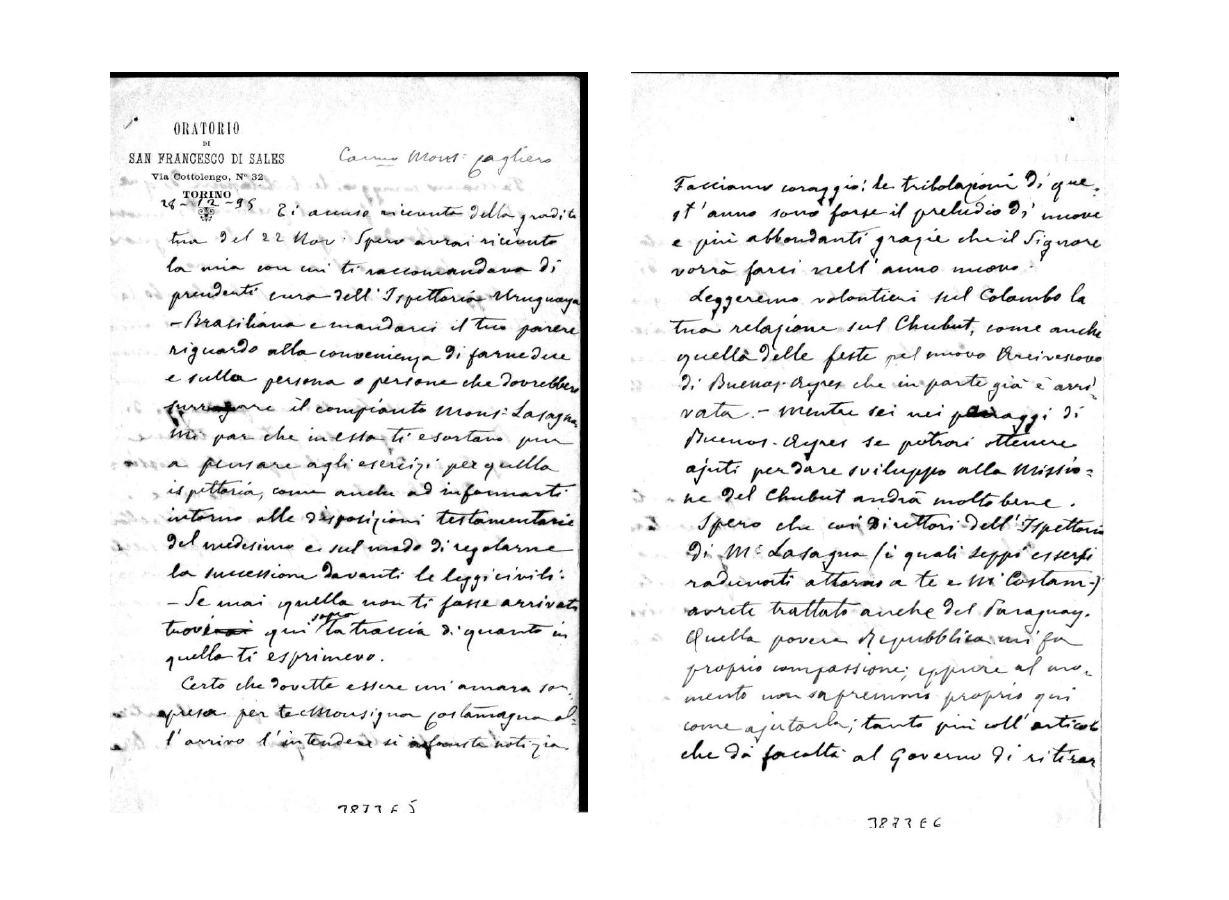 ORATORIO
DI
SAN FRANCESCO DI SALES
Via Cottolengo, Nº 32
TORINO
Carmo Mons. Cagliero
28-12-95
Ti accuso ricevuta della gradita
tua del 22 Nov. Spero avrai ricevuto
la mia con cui ti raccomandava di
prenderti cura dell'Ispettoria Uruguaya
- Brasiliana e mandarci il tuo parere
riguardo alla convenienza di farne due
e sulla persona o persone che dovrebbero
surrogare il compianto Mons. Lasagna
Mi par che in essa ti esortavo pur
a pensare agli esercizi per quella
ispettoria, come anche ad informarti
intorno alle disposizioni testamentarie
del medesimo e sul modo di regolarne
la successione davanti le leggi civili.
- Se mai quella non ti fosse arrivata
qui sopra la traccia di quanto in
quella ti esprimevo.
Certo che dovette essere un'amara sor
presa per te e Monsignor Costamagna al-
l'arrivo l'intendere sì infausta notizia
3873 E 5
Facciamo coraggio: le tribolazioni di que-
st'anno sono forse il preludio di nuove
e più abbondanti grazie che il Signore
vorrà farci nell'anno nuovo.
Leggeremo volontieri sul Colombo la
tua relazione sul Chubut, come anche
quella delle feste pel nuovo Arcivescovo
di Buenos-Ayres che in parte già è arri-
vata. - Mentre sei nei paraggi di
Buenos-Ayres se potrai ottenere
ajuti per dare sviluppo alla Missio=
ne del Chubut andrà molto bene.
Spero che coi Direttori dell'Ispettoria
di Mr Lasagna (i quali seppi essersi
radunati attorno a te e Mr Costam-)
avrete trattato anche del Paraguay.
Quella povera Repubblica mi fa
proprio compassione; eppure al mo-
mento non sapremmo proprio qui
come ajutarla; tanto più coll'articolo
che dà facoltà al Governo di ritirar
3873 E 6